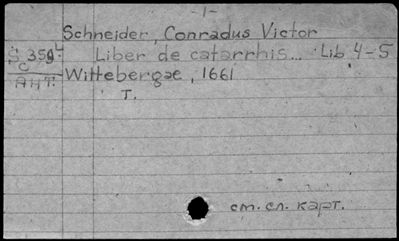 -1-
Schneider, Conradus Victor
Liber de catarrhis... Lib 4-5
Wittebergae, 1661
T.
см. сл. карт.